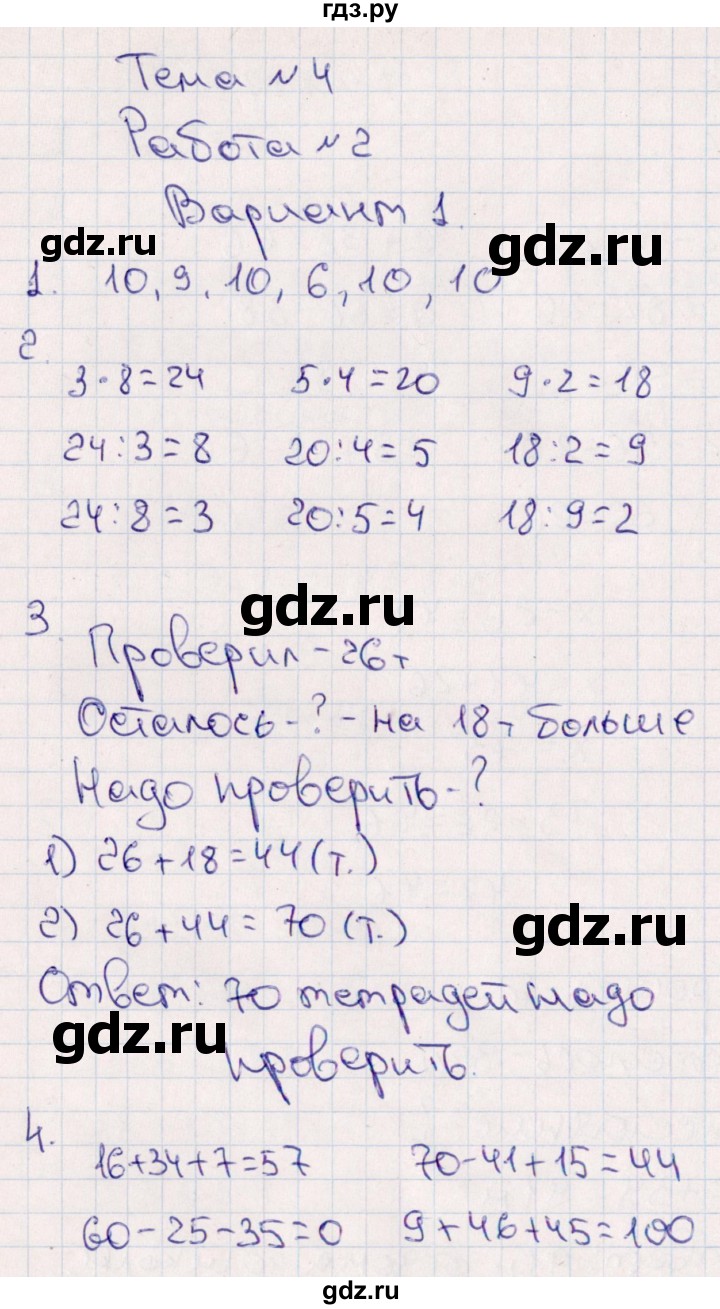 гдз.ру
Тема №4
Работа №2
Вариант 1.
gdz.ru
gdz.ru
1. 10, 9, 10, 6, 10, 10
2.
3·8=24 5·4=20 9·2=18
24:3=8 20:4=5 18:2=9
24:8=3 20:5=4 18:9=2
gdz.ru
3.
Проверил - 26т
Осталось - ? - на 18т больше
Надо проверить - ?
1) 26+18=44(т.)
2) 26+44=70(т.)
gdz.ru
Ответ: 70 тетрадей надо
gdz.ru
проверить.
4.
16+34+7=57 70-41+15=44
60-25-35=0 9+46+45=100
gdz.ru